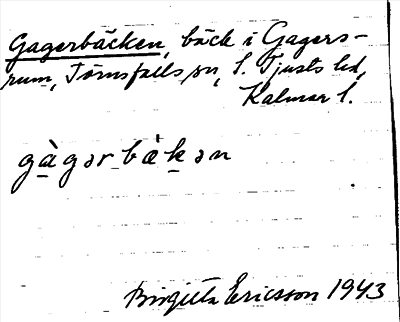 Gagerbäcken, bäck i Gagers-
rum, Törnsfalls sn, S. Tjusts hd,
Kalmar l.
gàgərbäkən
Birgitta Ericsson 1943